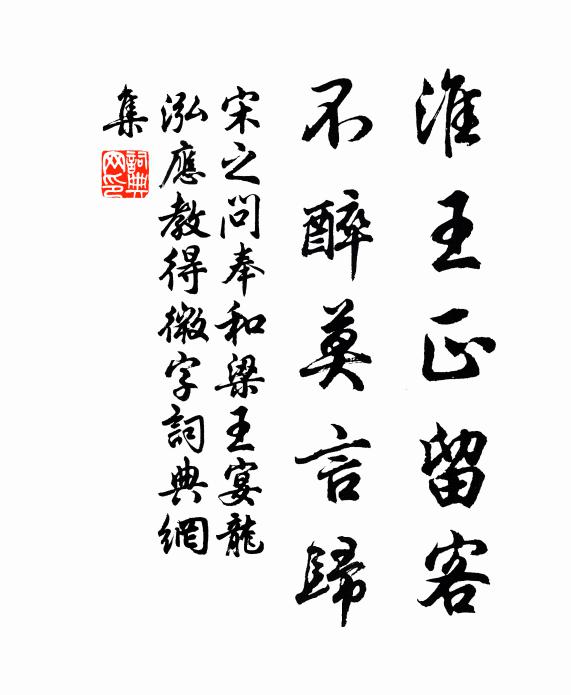 淮王正留客
不醉莫言歸
宋之問奉和梁王宴龍
泓應教得微字詞典網
集
詞典
网印